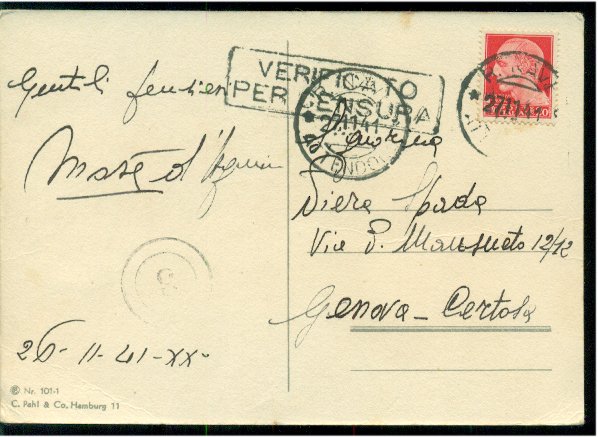 Gentili
VERIFICATO
PER CENSURA
27.11.41
27.11.41
Signorina
Piera Spada
Via S. Mansueto 12/12
Genova - Certosa
3
26-11-41-XX-
Nr. 101-1
C. Pahl & Co. Hamburg 11